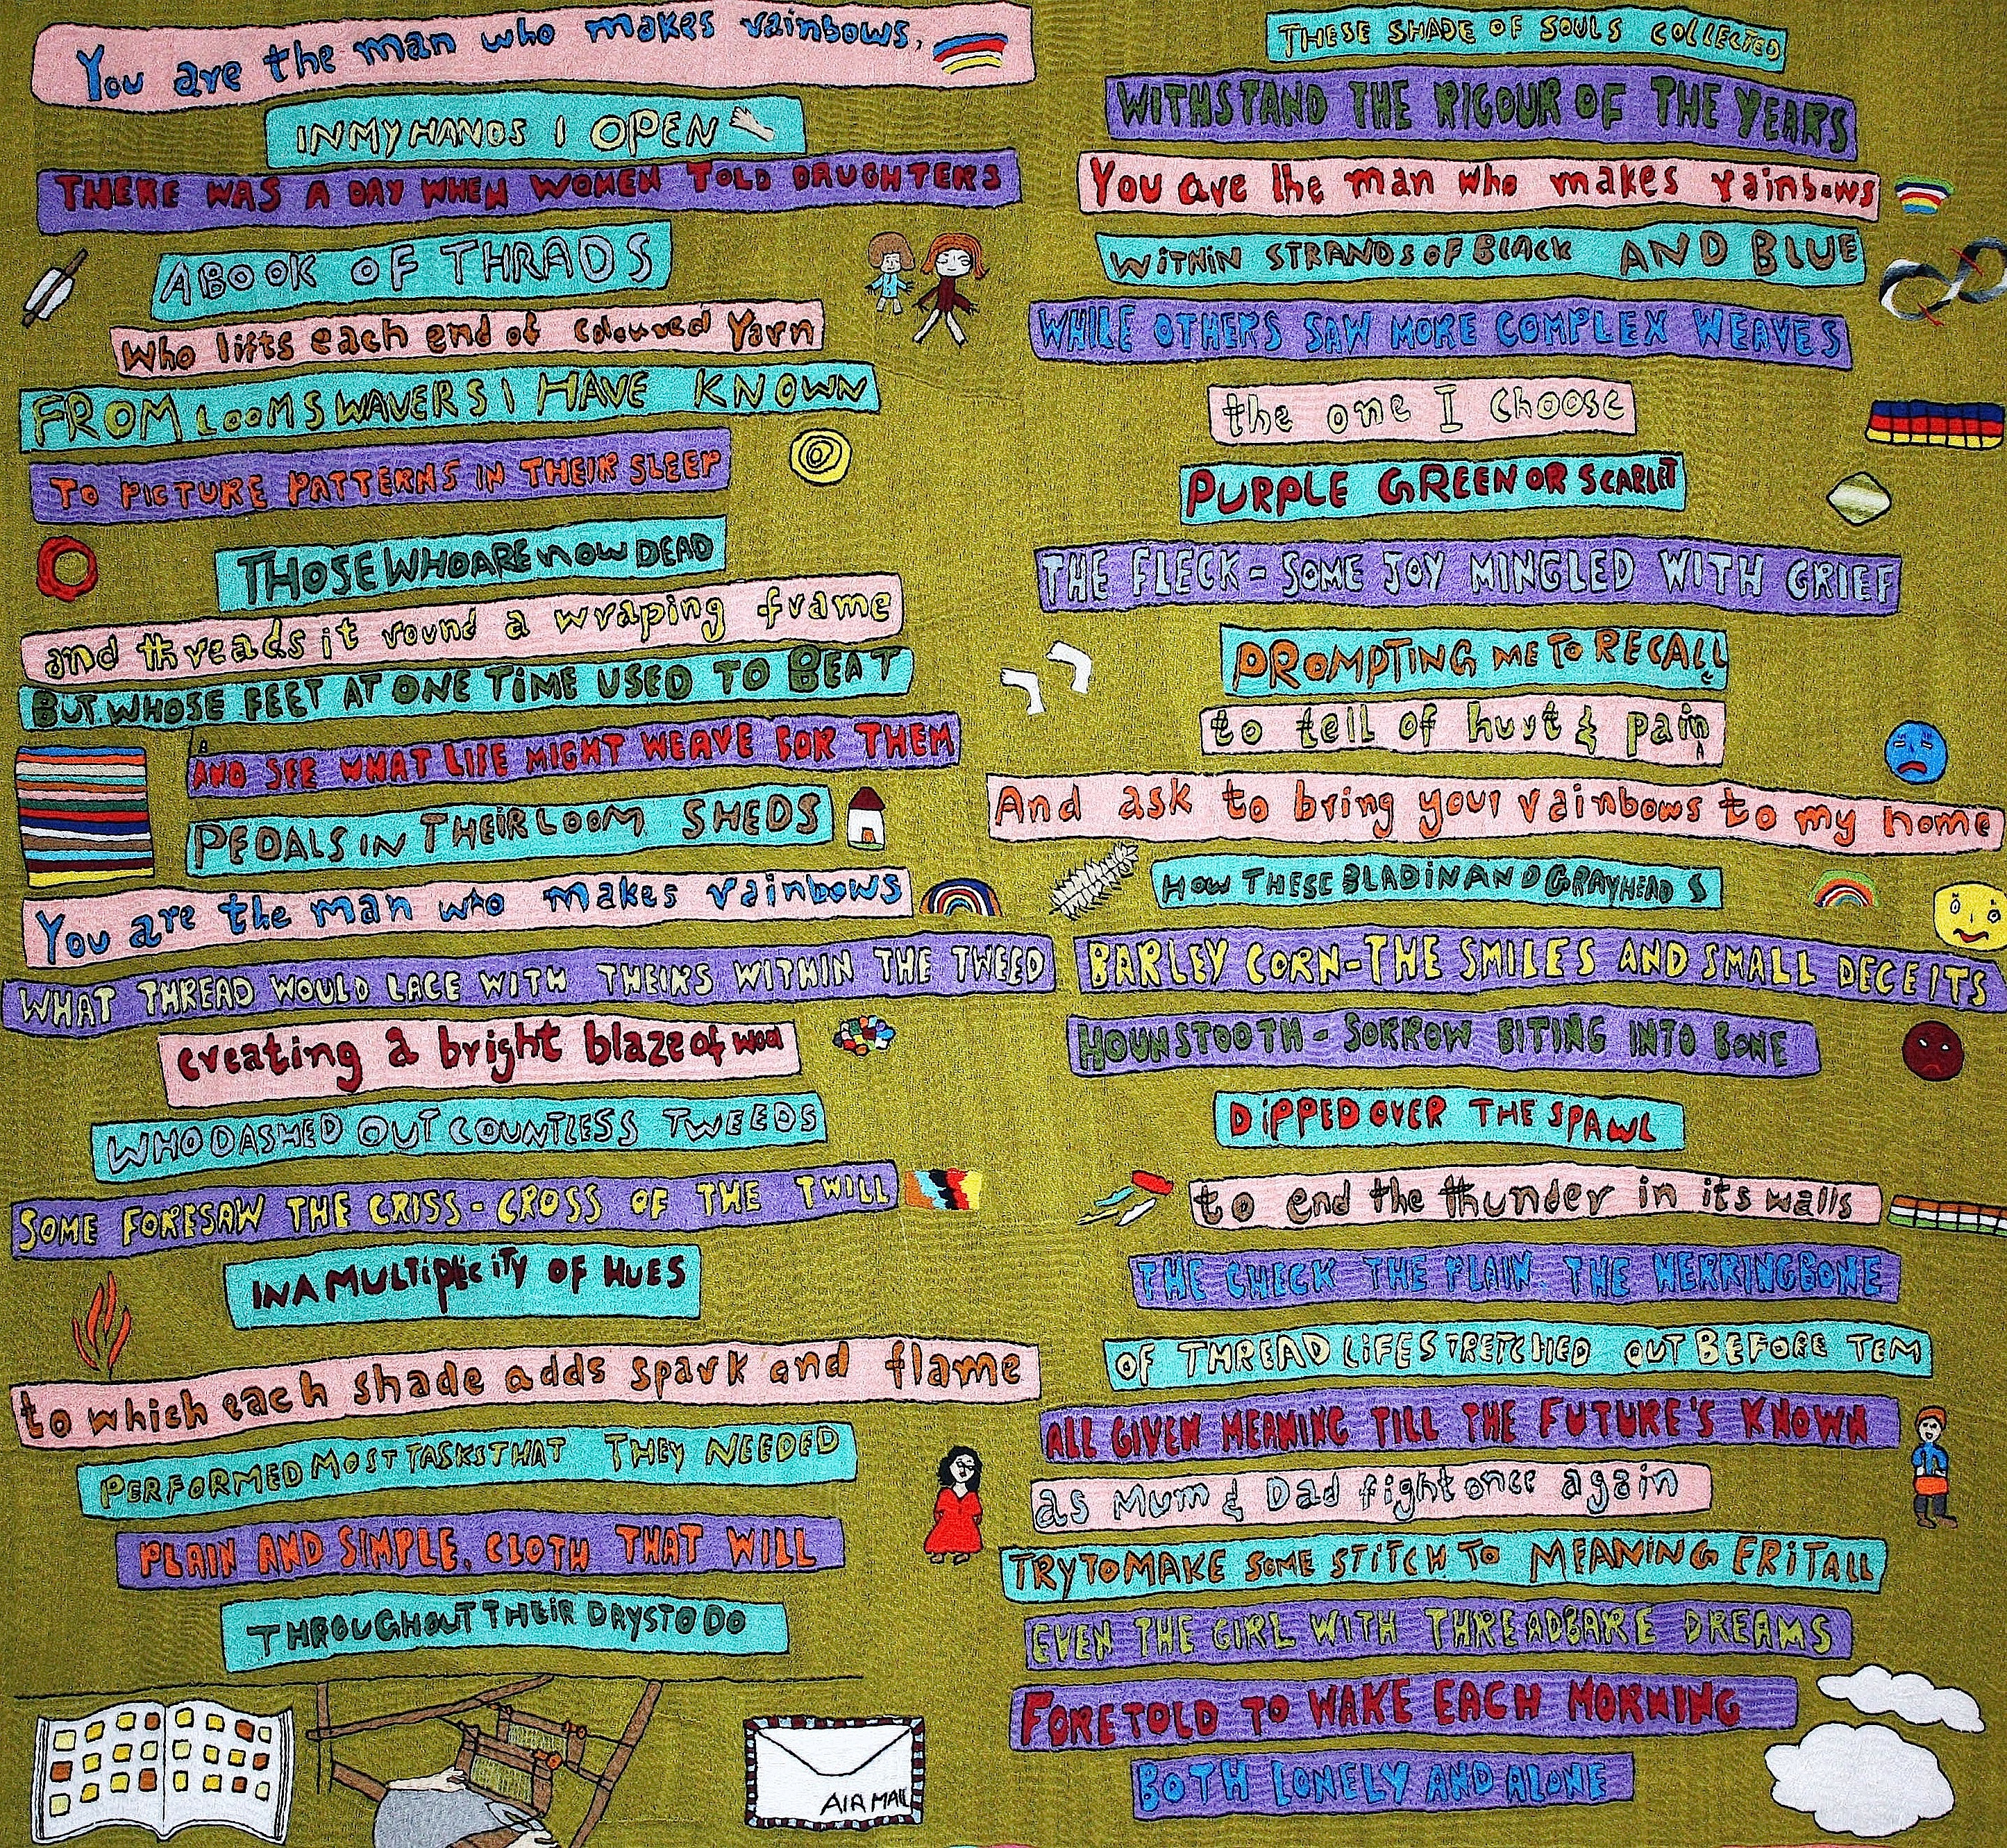 You are the man who makes rainbows,
IN MY HANDS I OPEN
THERE WAS A DAY WHEN WOMEN TOLD DAUGHTERS
A BOOK OF THRADS
Who lifts each end of coloured Yarn
FROM LOOMS WAVERS I HAVE KNOWN
TO PICTURE PATTERNS IN THEIR SLEEP
THOSE WHO ARE NOW DEAD
and threads it round a wraping frame
BUT WHOSE FEET AT ONE TIME USED TO BEAT
AND SEE WHAT LIFE MIGHT WEAVE FOR THEM
PEDALS IN THEIR LOOM SHEDS
You are the man who makes rainbows
WHAT THREAD WOULD LACE WITH THEIRS WITHIN THE TWEED
creating a bright blaze of wool
WHO DASHED OUT COUNTLESS TWEEDS
SOME FORESAW THE CRISS-CROSS OF THE TWILL
IN A MULTIPLICITY OF HUES
to which each shade adds spark and flame
PERFORMED MOST TASKS THAT THEY NEEDED
PLAIN AND SIMPLE, CLOTH THAT WILL
THROUGHOUT THEIR DAYS TO DO
AIR MAIL
THESE SHADE OF SOULS COLLECTED
WITHSTAND THE RIGOUR OF THE YEARS
You are the man who makes rainbows
WITHIN STRANDS OF BLACK AND BLUE
WHILE OTHERS SAW MORE COMPLEX WEAVES
the one I choose
PURPLE GREEN OR SCARLET
THE FLECK - SOME JOY MINGLED WITH GRIEF
PROMPTING ME TO RECALL
to tell of hurt & pain
And ask to bring your rainbows to my home
HOW THESE BLADIN AND GRAYHEADS
BARLEY CORN-THE SMILES AND SMALL DECEITS
HOUNSTOOTH - SORROW BITING INTO BONE
DIPPED OVER THE SPAWL
to end the thunder in its walls
THE CHECK THE PLAIN. THE HERRINGBONE
OF THREAD LIFE STRETCHED OUT BEFORE TEM
ALL GIVEN MEANING TILL THE FUTURE'S KNOWN
as Mum & Dad fight once again
TRY TO MAKE SOME STITCH TO MEANING FRIT ALL
EVEN THE GIRL WITH THREADBARE DREAMS
FORETOLD TO WAKE EACH MORNING
BOTH LONELY AND ALONE